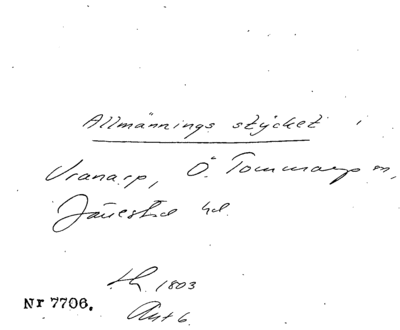 Allmännings stycket i
Vranarp, Ö. Tommarp sn,
Järrestad hd.
1803
Akt 6.
Nr 7706.